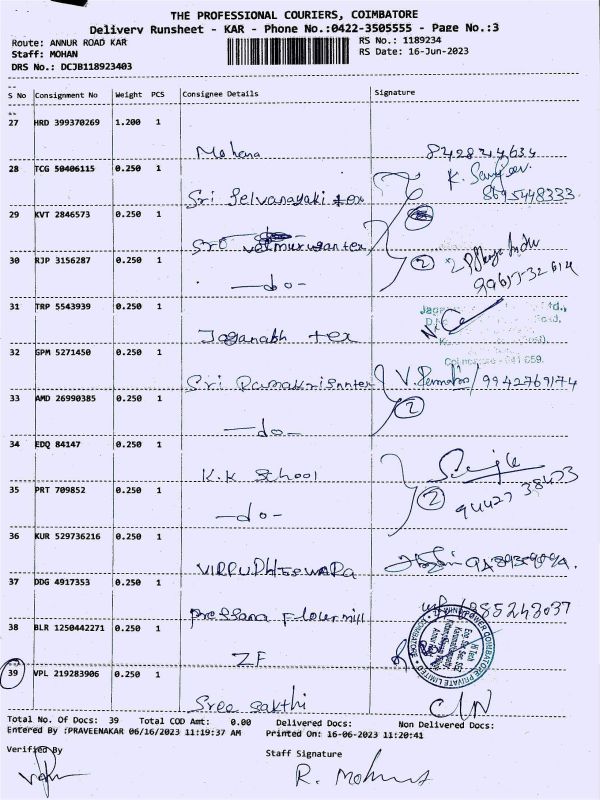 THE PROFESSIONAL COURIERS, COIMBATORE
Delivery Runsheet - KAR - Phone No.:0422-3505555 - Page No.:3
Route: ANNUR ROAD KAR
RS No.: 1189234
Staff: MOHAN
RS Date: 16-Jun-2023
DRS No.: DCJB118923403
S No Consignment No Weight PCS Consignee Details Signature
27 HRD 399370269 1.200 1
Mohana 8428244634
28 TCG 50406115 0.250 1
K. Sanjeev
Sri Selvanayaki tex 8695448333
29 KVT 2846573 0.250 1
Sri velmurugan tex
30 RJP 3156287 0.250 1
2
-do-
31 TRP 5543939 0.250 1
Jaganath tex
Coimbatore - 641 659.
32 GPM 5271450 0.250 1
Sri Ramakrisnntex 9942769174
33 AMD 26990385 0.250 1
2
-do-
34 EDQ 84147 0.250 1
K.K School
35 PRT 709852 0.250 1
2 94427 38473
-do-
36 KUR 529736216 0.250 1
VIRRUPHTSWARa
37 DDG 4917353 0.250 1
flour mill
38 BLR 1250442271 0.250 1
ZF
39 VPL 219283906 0.250 1
Sree Sakthi
Total No. Of Docs: 39 Total COD Amt: 0.00 Delivered Docs: Non Delivered Docs:
Entered By :PRAVEENAKAR 06/16/2023 11:19:37 AM Printed On: 16-06-2023 11:20:41
Verified By
Staff Signature
R. Mohan